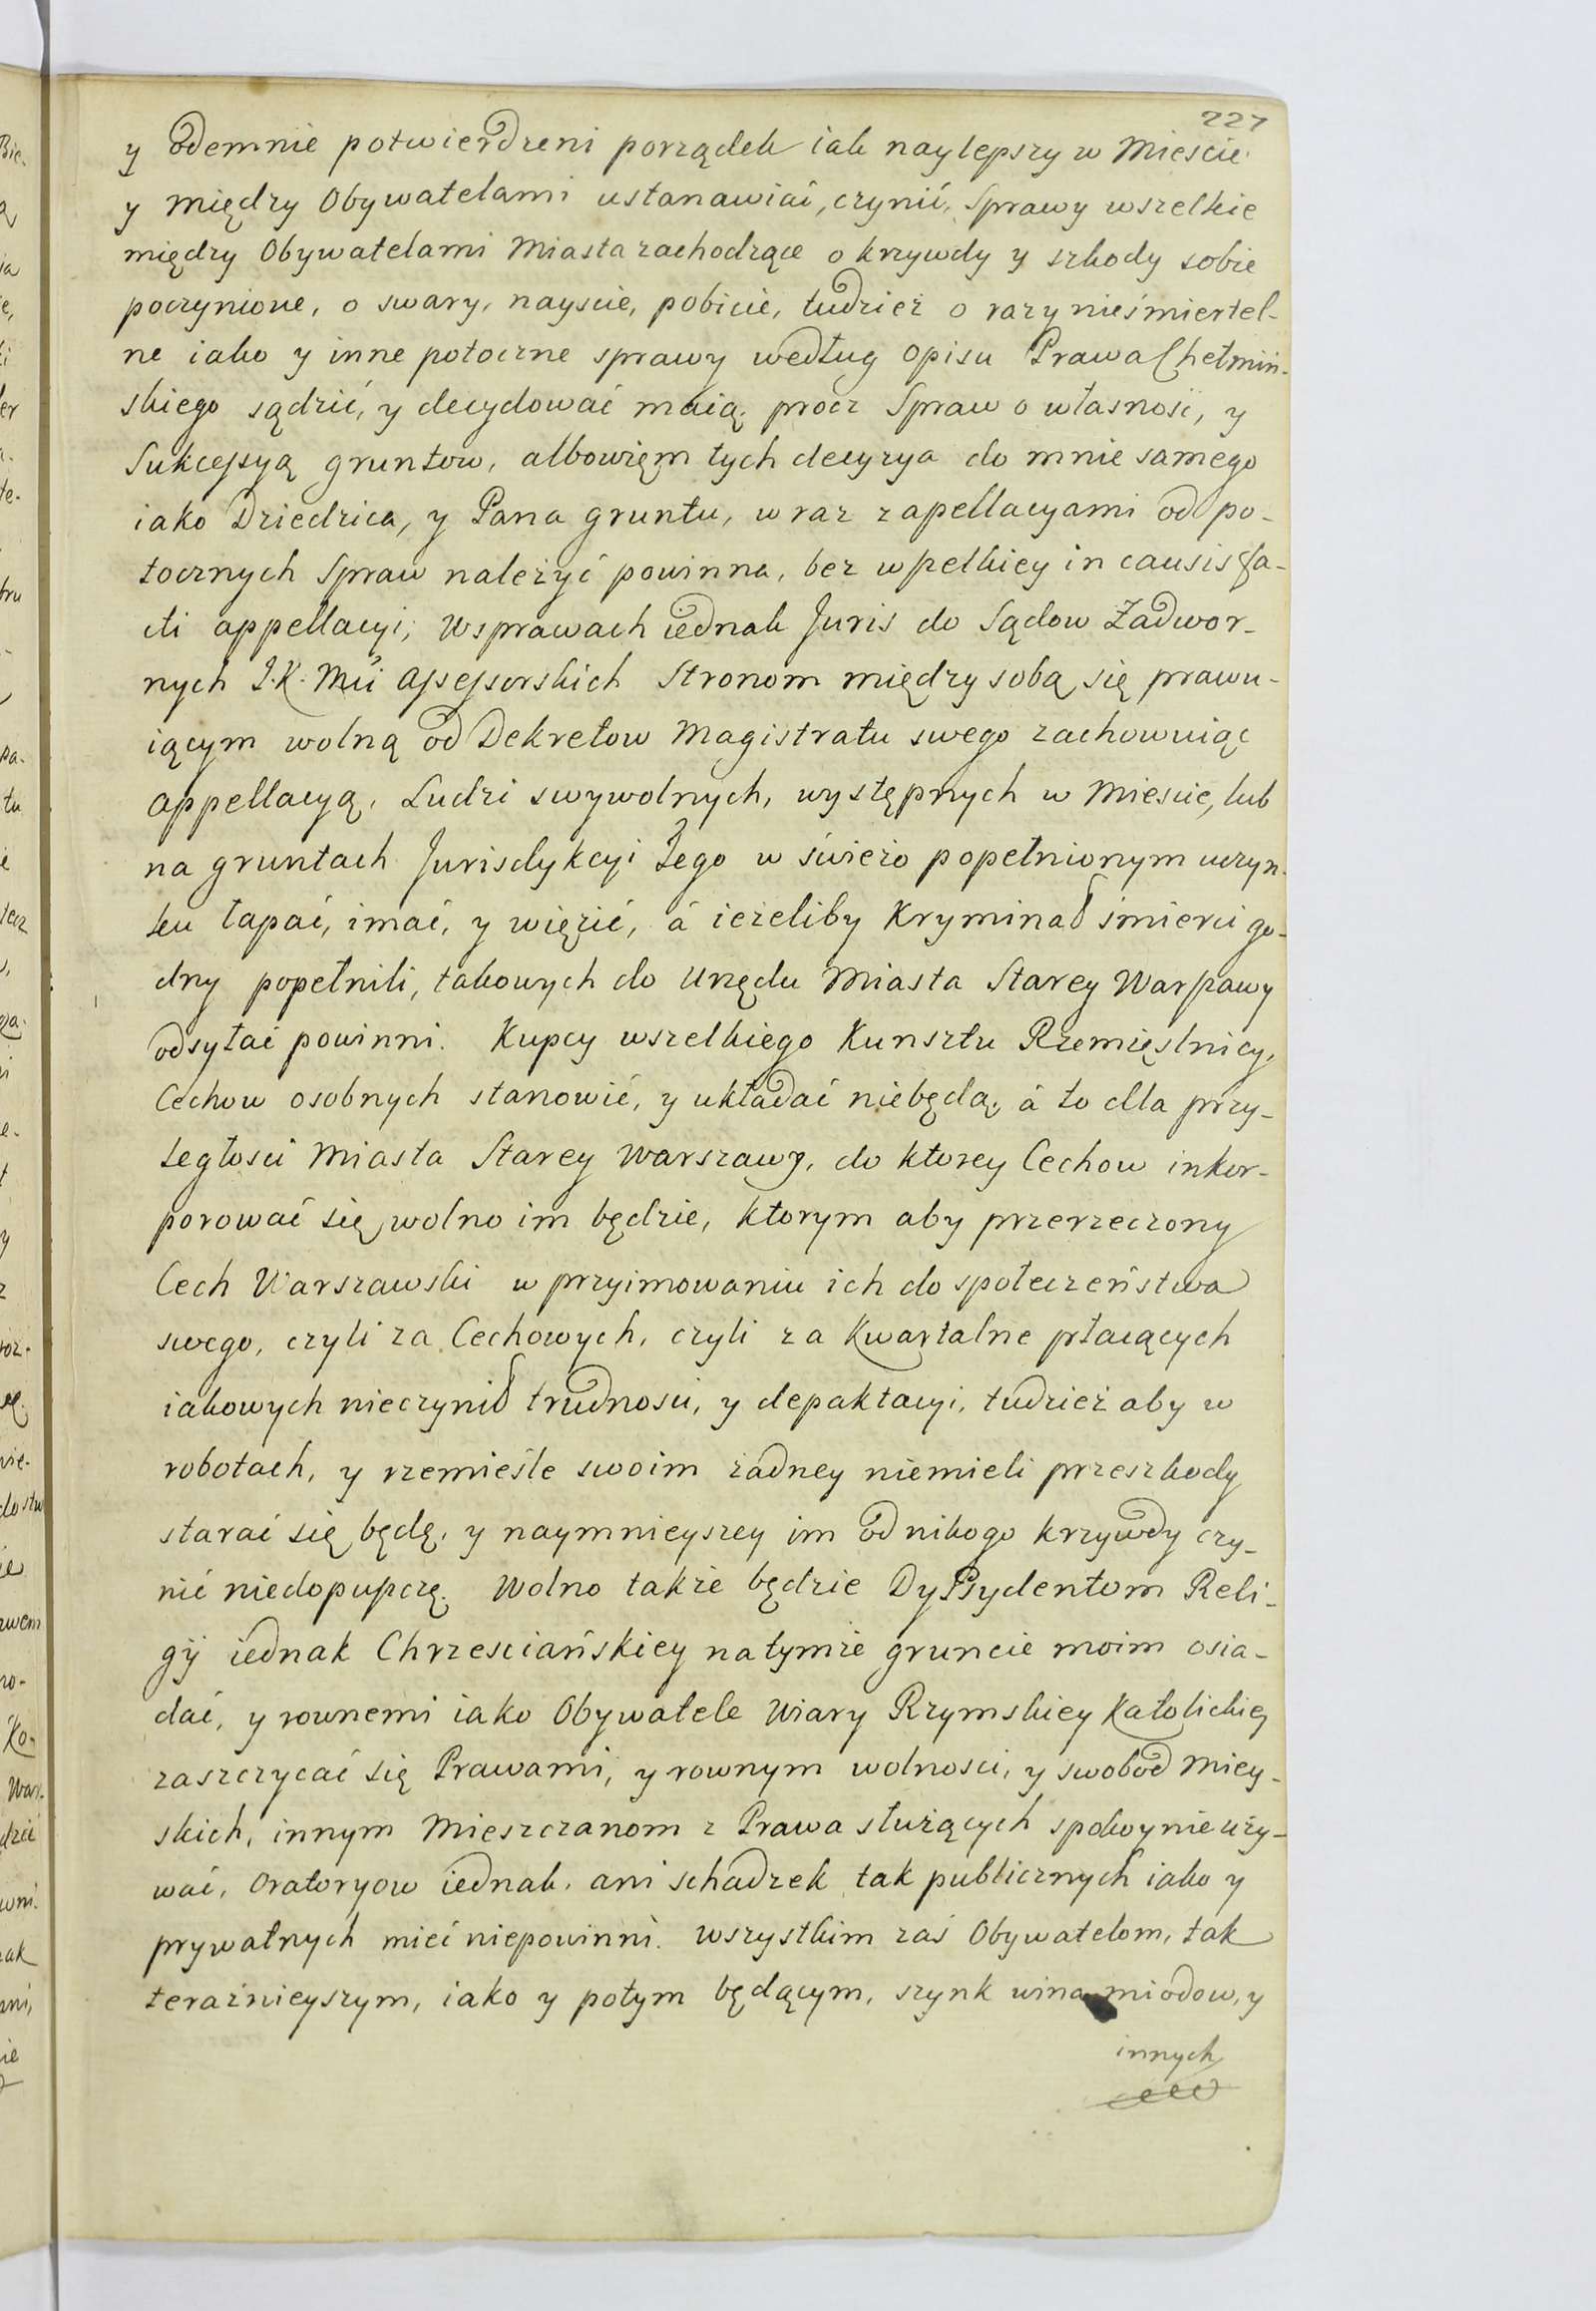 227
y odemnie potwierdzeni porządek iak naylepszy w Mieście
y między Obywatelami ustanawiać, czynić, Sprawy wszelkie
między Obywatelami Miasta zachodzące o krzywdy y szkody sobie
poczynione, o swary, nayscie, pobicie, tudzież o razy nieśmiertel-
ne iako y inne potoczne sprawy według opisu Prawa Chełmiń-
skiego sądzić, y decydować maią, procz Spraw o własność, y
Sukcessyą gruntow, albowięm tych decyzya do mnie samego
iako Dziedzica, y Pana gruntu, wraz z apellacyami od po-
tocznych Spraw należyć powinna, bez wszelkiey in causis fa-
cti appellacyi, w sprawach iednak Juris do Sądow Zadwor-
nych J.K.Mci Assessorskich Stronom między sobą się prawu-
iącym wolną od Dekretow Magistratu swego zachowuiąc
appellacyą. Ludzi swywolnych, występnych w Mieście, lub
na gruntach Jurisdykcyi Jego w świeżo popełnionym uczyn-
ku łapać, imać, y więzić, á ieżeliby Kryminał śmierci go-
dny popełnili, takowych do Urzędu Miasta Starey Warszawy
odsyłać powinni. Kupcy wszelkiego Kunsztu Rzemięslnicy,
Cechow osobnych stanowić, y układać niebędą, á to dla przy-
ległości Miasta Starey Warszawy, do ktorey Cechow inkor-
porować się wolno im będzie, ktorym aby przerzeczony
Cech Warszawski w przyimowaniu ich do społeczeństwa
swego, czyli za Cechowych, czyli za Kwartalne płacących
iakowych nieczynił trudności, y depaktacyi, tudzież aby w
robotach, y rzemieśle swoim żadney niemieli przeszkody
starać się będę, y naymnieyszey im od nikogo krzywdy czy-
nić niedopuszczę. Wolno także będzie Dyssydentom Reli-
gij iednak Chrześciańskiey na tymże gruncie moim osia-
dać, y rownemi iako Obywatele Wiary Rzymskiey Katolickiey
zaszczycać się Prawami, y rownym wolności, y swobod Miey-
skich, innym Mieszczanom z Prawa służących spokoynie uży-
wać, oratoryow iednak, ani schadzek tak publicznych iako y
prywatnych mieć niepowinni. Wszystkim zaś Obywatelom, tak
teraźnieyszym, iako y potym będącym, szynk wina miodow, y
innych